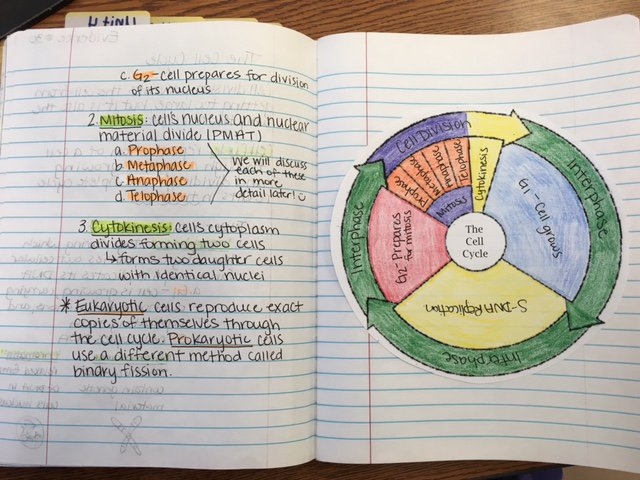 Unit 4
c. G2-cell prepares for division
of its nucleus
2. Mitosis: cell's nucleus and nuclear
material divide (PMAT)
a. Prophase
b. Metaphase
c. Anaphase
d. Telophase
We will discuss
each of these
in more
detail later!
3. Cytokinesis: cells cytoplasm
divides forming two cells
↳ forms two daughter cells
with identical nuclei
* Eukaryotic cells reproduce exact
copies of themselves through
the cell cycle. Prokaryotic cells
use a different method called
binary fission.
Cell Division
Prophase
Metaphase
Anaphase
Telophase
Mitosis
Cytokinesis
Interphase
G1-Cell grows
S-DNA Replication
Interphase
G2-Prepares
for mitosis
Interphase
The
Cell
Cycle